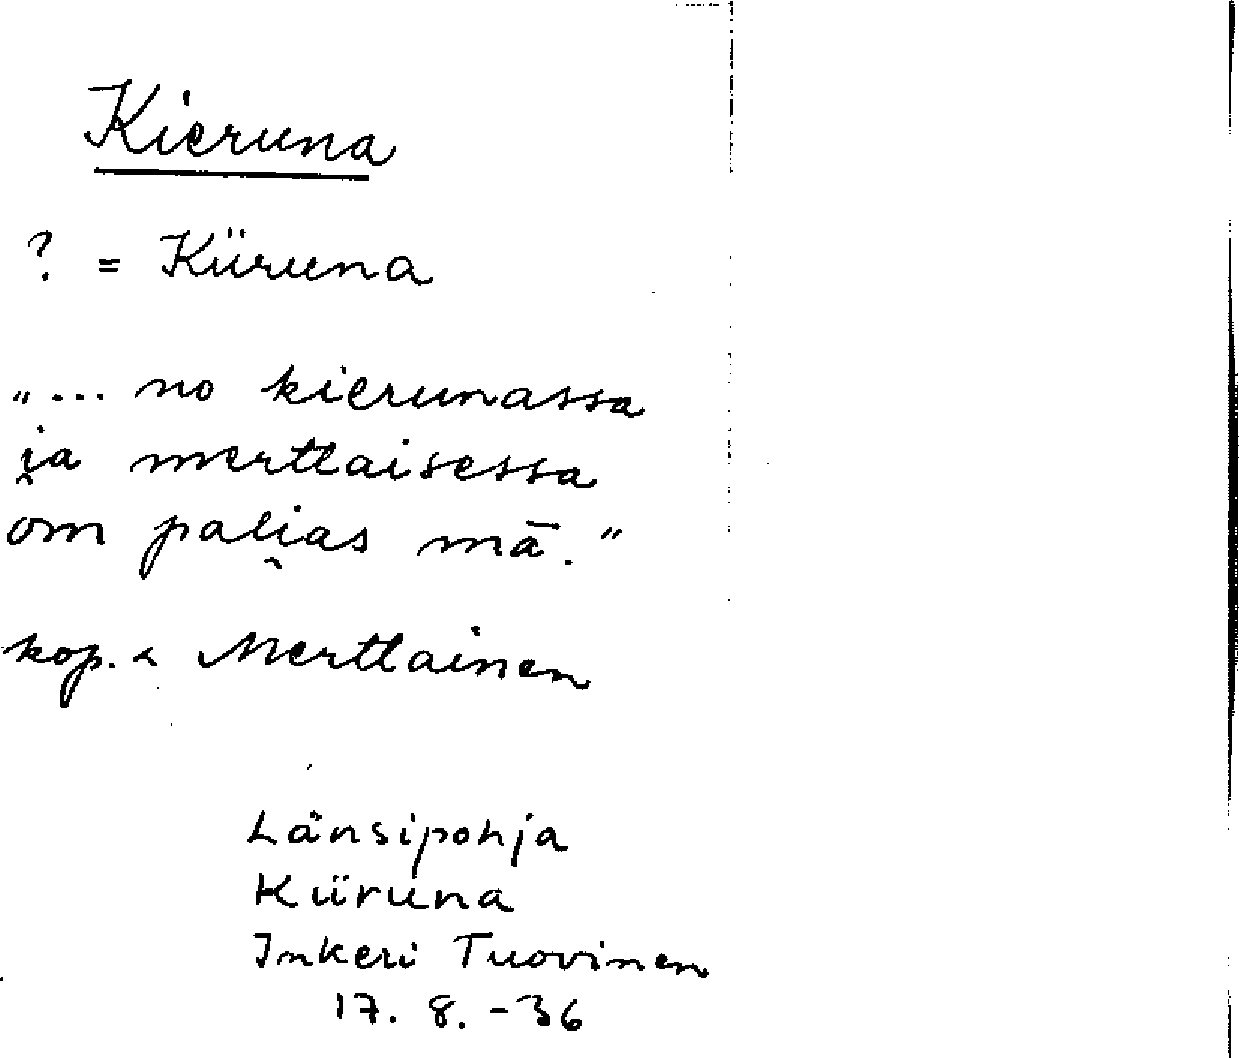 Kieruna
? = Kiiruna
„... no kierunassa
i̯a merttaisessa
om pali̯as mā."
kop. < Merttainen
Länsipohja
Kiiruna
Inkeri Tuovinen
17. 8. -36